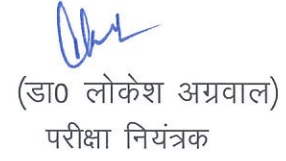 (डा0 लोकेश अग्रवाल)
परीक्षा नियंत्रक